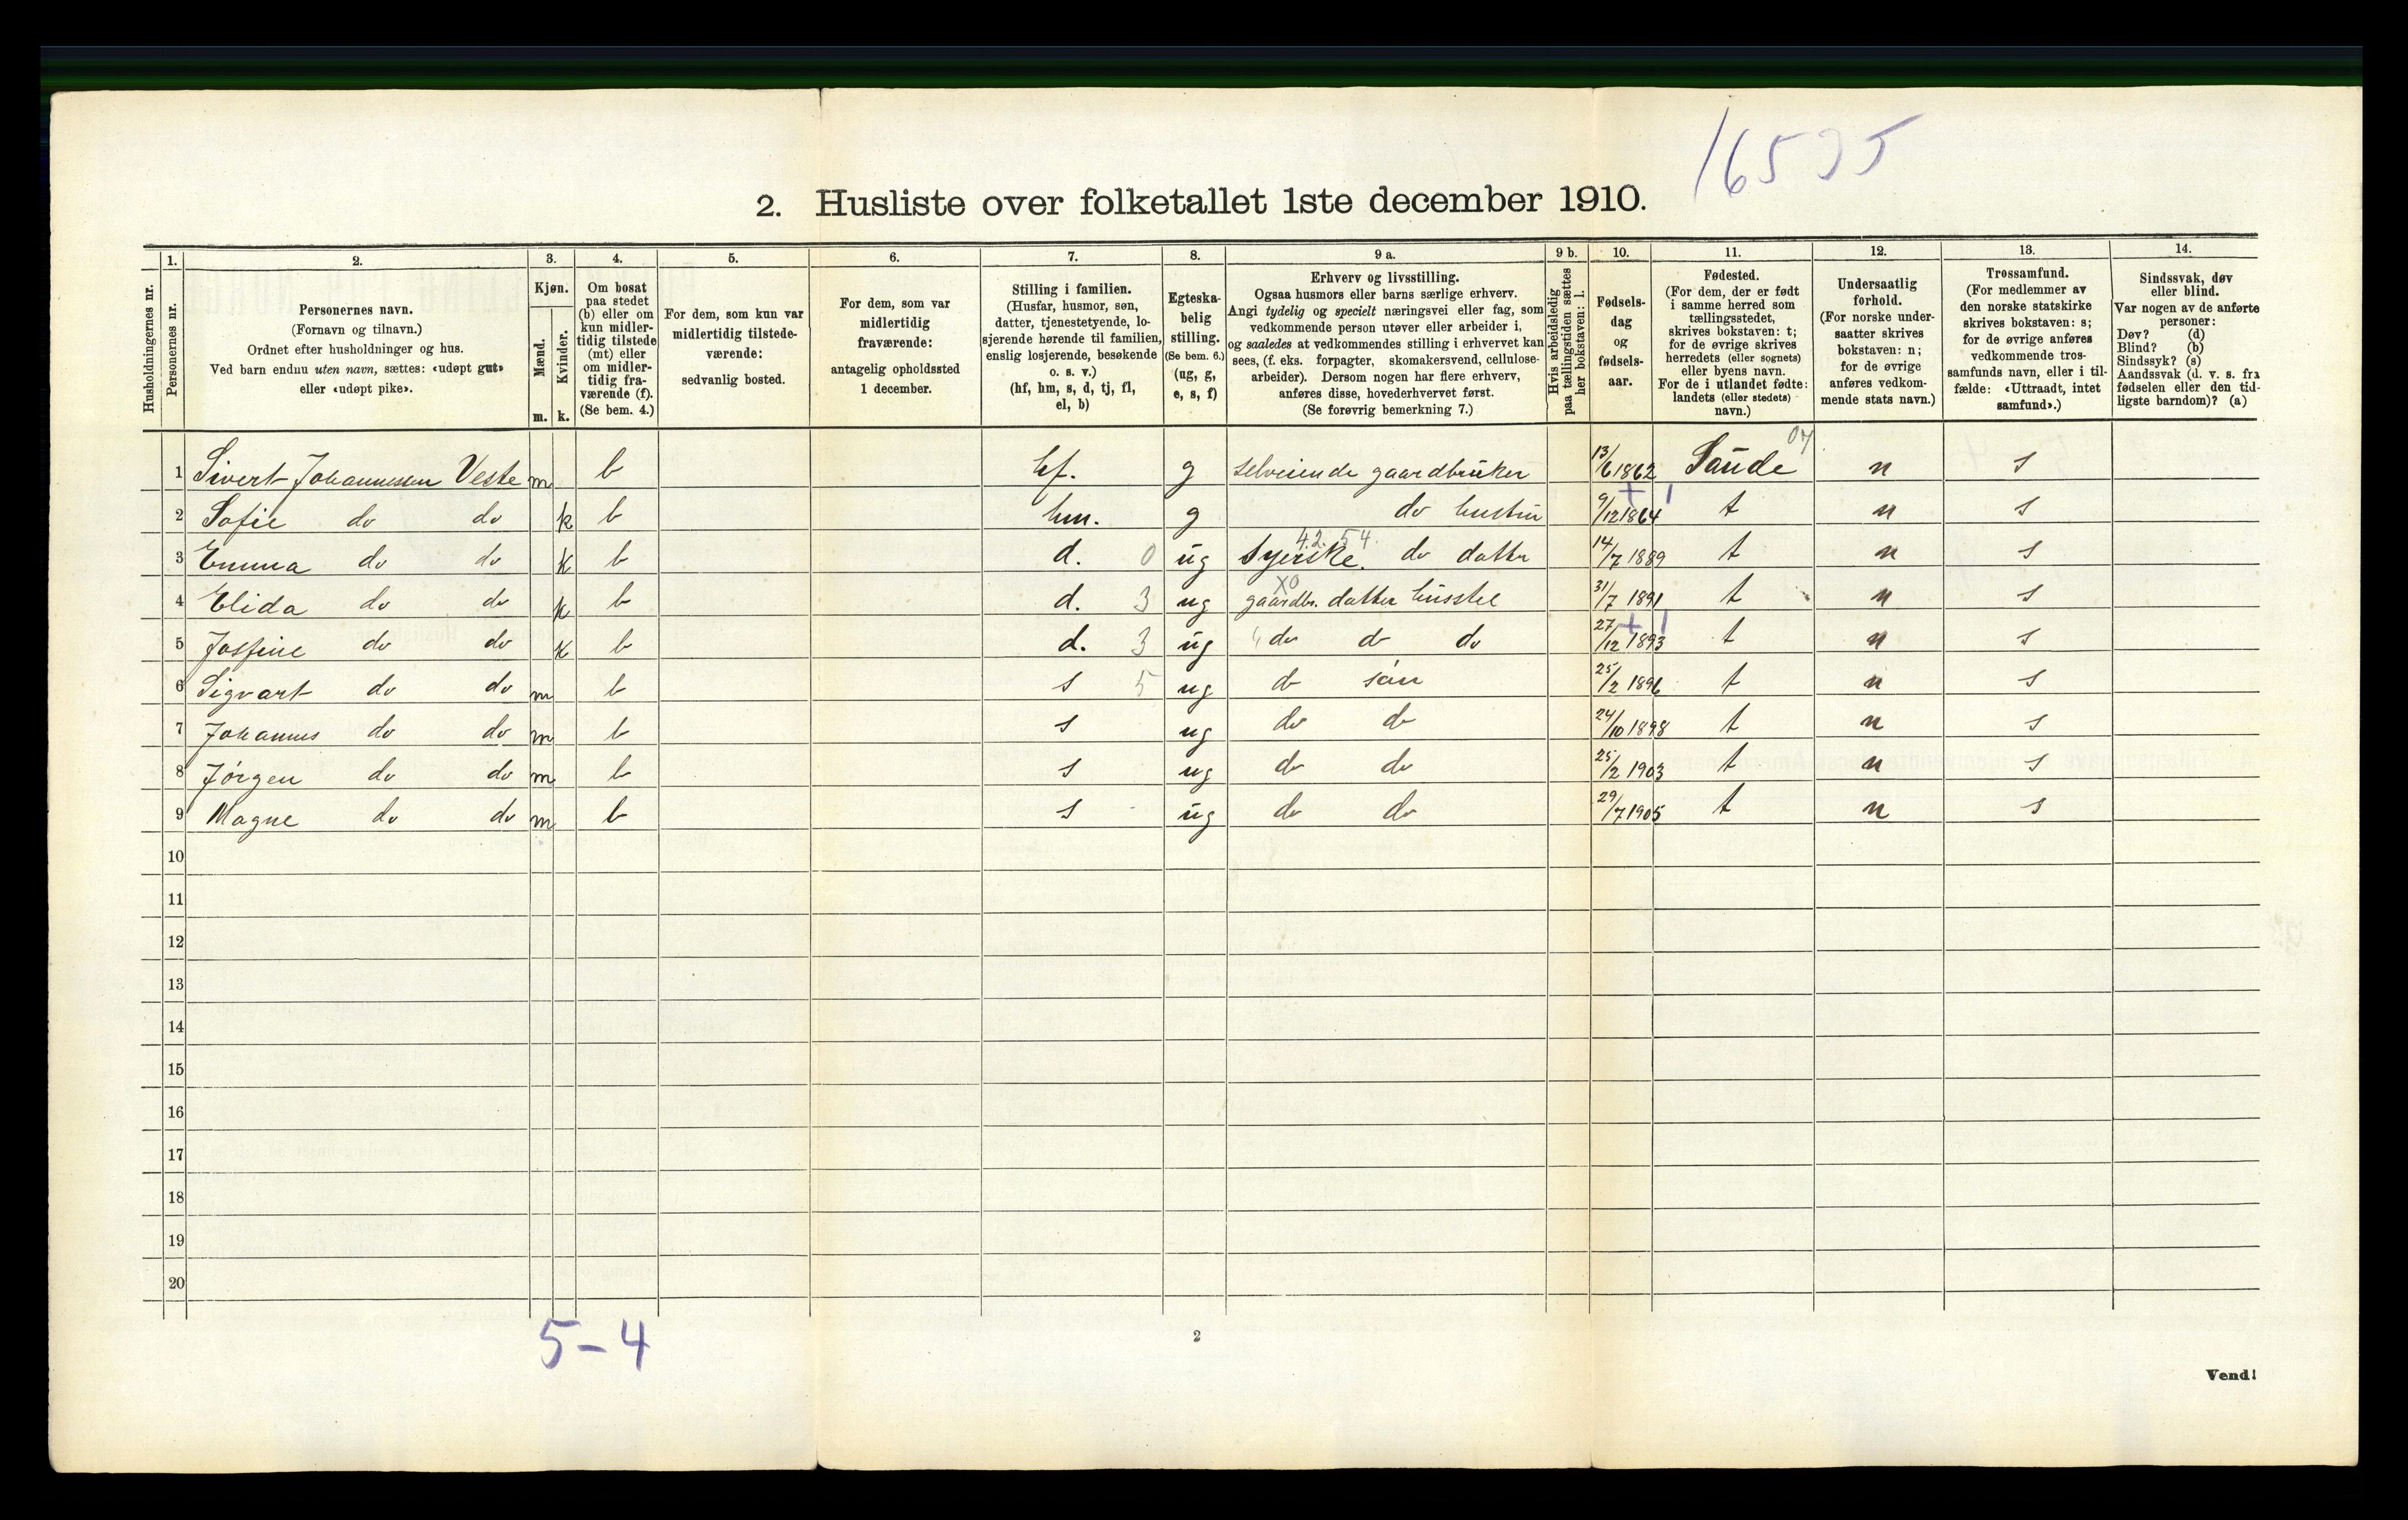 16535
2. Husliste over folketallet 1ste december 1910.
Husholdningernes nr.
1. Personernes nr.
2. Personernes navn.
(Fornavn og tilnavn.)
Ordnet efter husholdninger og hus.
Ved barn endnu uten navn, sættes: «udøpt gut»
eller «udøpt pike».
3. Kjøn.
Mænd. m.
Kvinder. k.
4. Om bosat
paa stedet
(b) eller om
kun midler-
tidig tilstede
(mt) eller
om midler-
tidig fra-
værende (f).
(Se bem. 4.)
5. For dem, som kun var
midlertidig tilstede-
værende:
sedvanlig bosted.
6. For dem, som var
midlertidig
fraværende:
antagelig opholdssted
1 december.
7. Stilling i familien.
(Husfar, husmor, søn,
datter, tjenestetyende, lo-
sjerende hørende til familien,
enslig losjerende, besøkende
o. s. v.)
(hf, hm, s, d, tj, fl,
el, b)
8. Egteska-
belig
stilling.
(Se bem. 6.)
(ug, g,
e, s, f)
9 a. Erhverv og livsstilling.
Ogsaa husmors eller barns særlige erhverv.
Angi tydelig og specielt næringsvei eller fag, som
vedkommende person utøver eller arbeider i,
og saaledes at vedkommendes stilling i erhvervet kan
sees, (f. eks. forpagter, skomakersvend, cellulose-
arbeider). Dersom nogen har flere erhverv,
anføres disse, hovederhvervet først.
(Se forøvrig bemerkning 7.)
9 b. Hvis arbeidsledig
paa tællingstiden sættes
her bokstaven: l.
10. Fødsels-
dag
og
fødsels-
aar.
11. Fødested.
(For dem, der er født
i samme herred som
tællingsstedet,
skrives bokstaven: t;
for de øvrige skrives
herredets (eller sognets)
eller byens navn.
For de i utlandet fødte:
landets (eller stedets)
navn.)
12. Undersaatlig
forhold.
(For norske under-
saatter skrives
bokstaven: n;
for de øvrige
anføres vedkom-
mende stats navn.)
13. Trossamfund.
(For medlemmer av
den norske statskirke
skrives bokstaven: s;
for de øvrige anføres
vedkommende tros-
samfunds navn, eller i til-
fælde: «Uttraadt, intet
samfund».)
14. Sindssvak, døv
eller blind.
Var nogen av de anførte
personer:
Døv? (d)
Blind? (b)
Sindssyk? (s)
Aandssvak (d. v. s. fra
fødselen eller den tid-
ligste barndom)? (a)
07
1 Sivert Johannessen Veste m b hf. g selveiende gaardbruker 13/6 1862 Saude n s
2 Sofie do do k b hm. g do hustru 9/12 1864 t n s
42.54.
3 Emma do do k b d. 0 ug syerske. do datter 14/7 1889 t n s
X0
4 Elida do do k b d. 3 ug gaardbr. datter husstel 31/7 1891 t n s
5 Josfine do do k b d. 3 ug do do do 27/12 1893 t n s
6 Sigvart do do m b s 5 ug do søn 25/2 1896 t n s
7 Johannes do do m b s ug do do 24/10 1898 t n s
8 Jørgen do do m b s ug do do 25/2 1903 t n s
9 Magne do do m b s ug do do 29/7 1905 t n s
10
11
12
13
14
15
16
17
18
19
20
5-4
2
Vend!